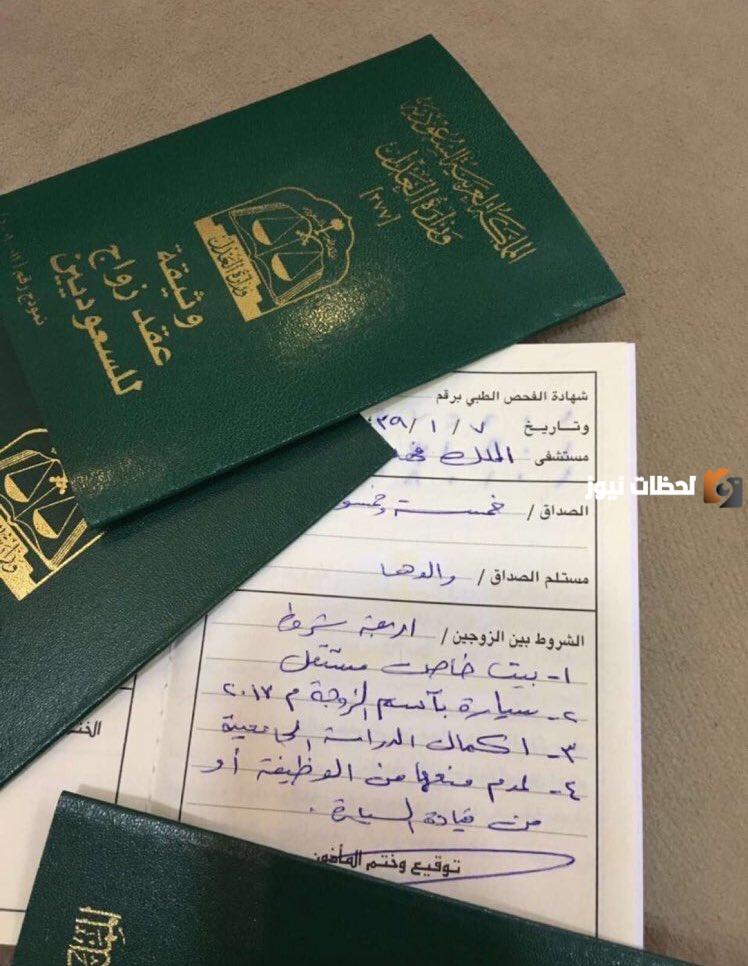 المملكة العربية السعودية
وزارة العدل
[٢٧٧]
وزارة العدل
وثيقة
عقد زواج
للسعوديين
نموذج رقم
شهادة الفحص الطبي برقم
وتاريخ ٧ / ١ / ٣٩
مستشفى الملك فهد
لحظات نيوز
الصداق / خمسة وخمسو
مستلم الصداق / والدها
الشروط بين الزوجين / اربعة شروط
١- بيت خاص مستقل
٢- سيارة بآسم الزوجة م ٢٠١٧
٣- اكمال الدراسة الجامعية
٤- لعدم منعها من الوظيفة أو
من قيادة السيارة .
توقيع وختم المأذون
الخت